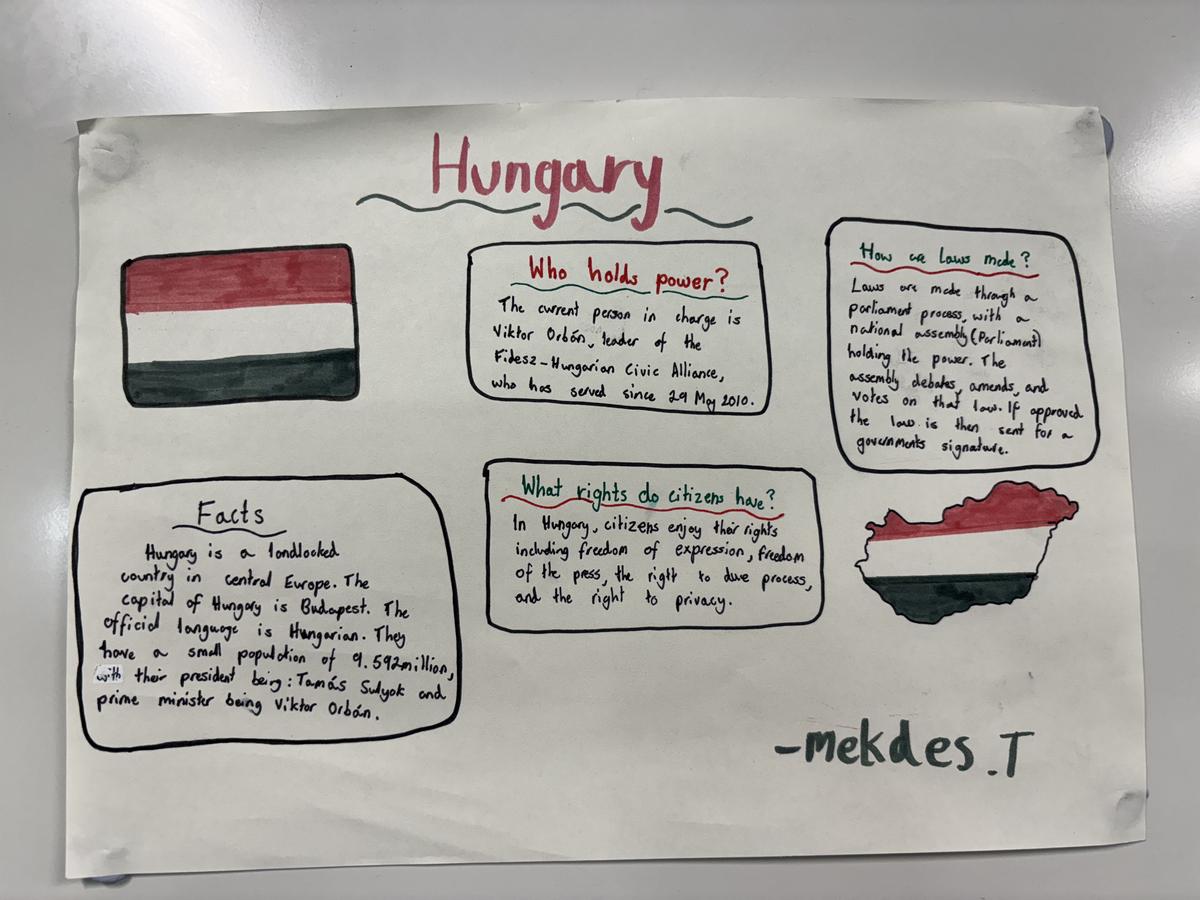 Hungary
Who holds power?
The current person in charge is
Viktor Orbán, leader of the
Fidesz-Hungarian Civic Alliance,
who has served since 29 May 2010.
How are Laws made?
Laws are made through a
parliament process, with a
national assembly (Parliament)
holding the power. The
assembly debates, amends, and
votes on that law. If approved
the law is then sent for a
governments signature.
Facts
Hungary is a landlocked
country in central Europe. The
capital of Hungary is Budapest. The
official language is Hungarian. They
have a small population of 9.592million,
with their president being: Tamás Sulyok and
prime minister being Viktor Orbán.
What rights do citizens have?
In Hungary, citizens enjoy their rights
including freedom of expression, freedom
of the press, the right to due process,
and the right to privacy.
-mekdes.T